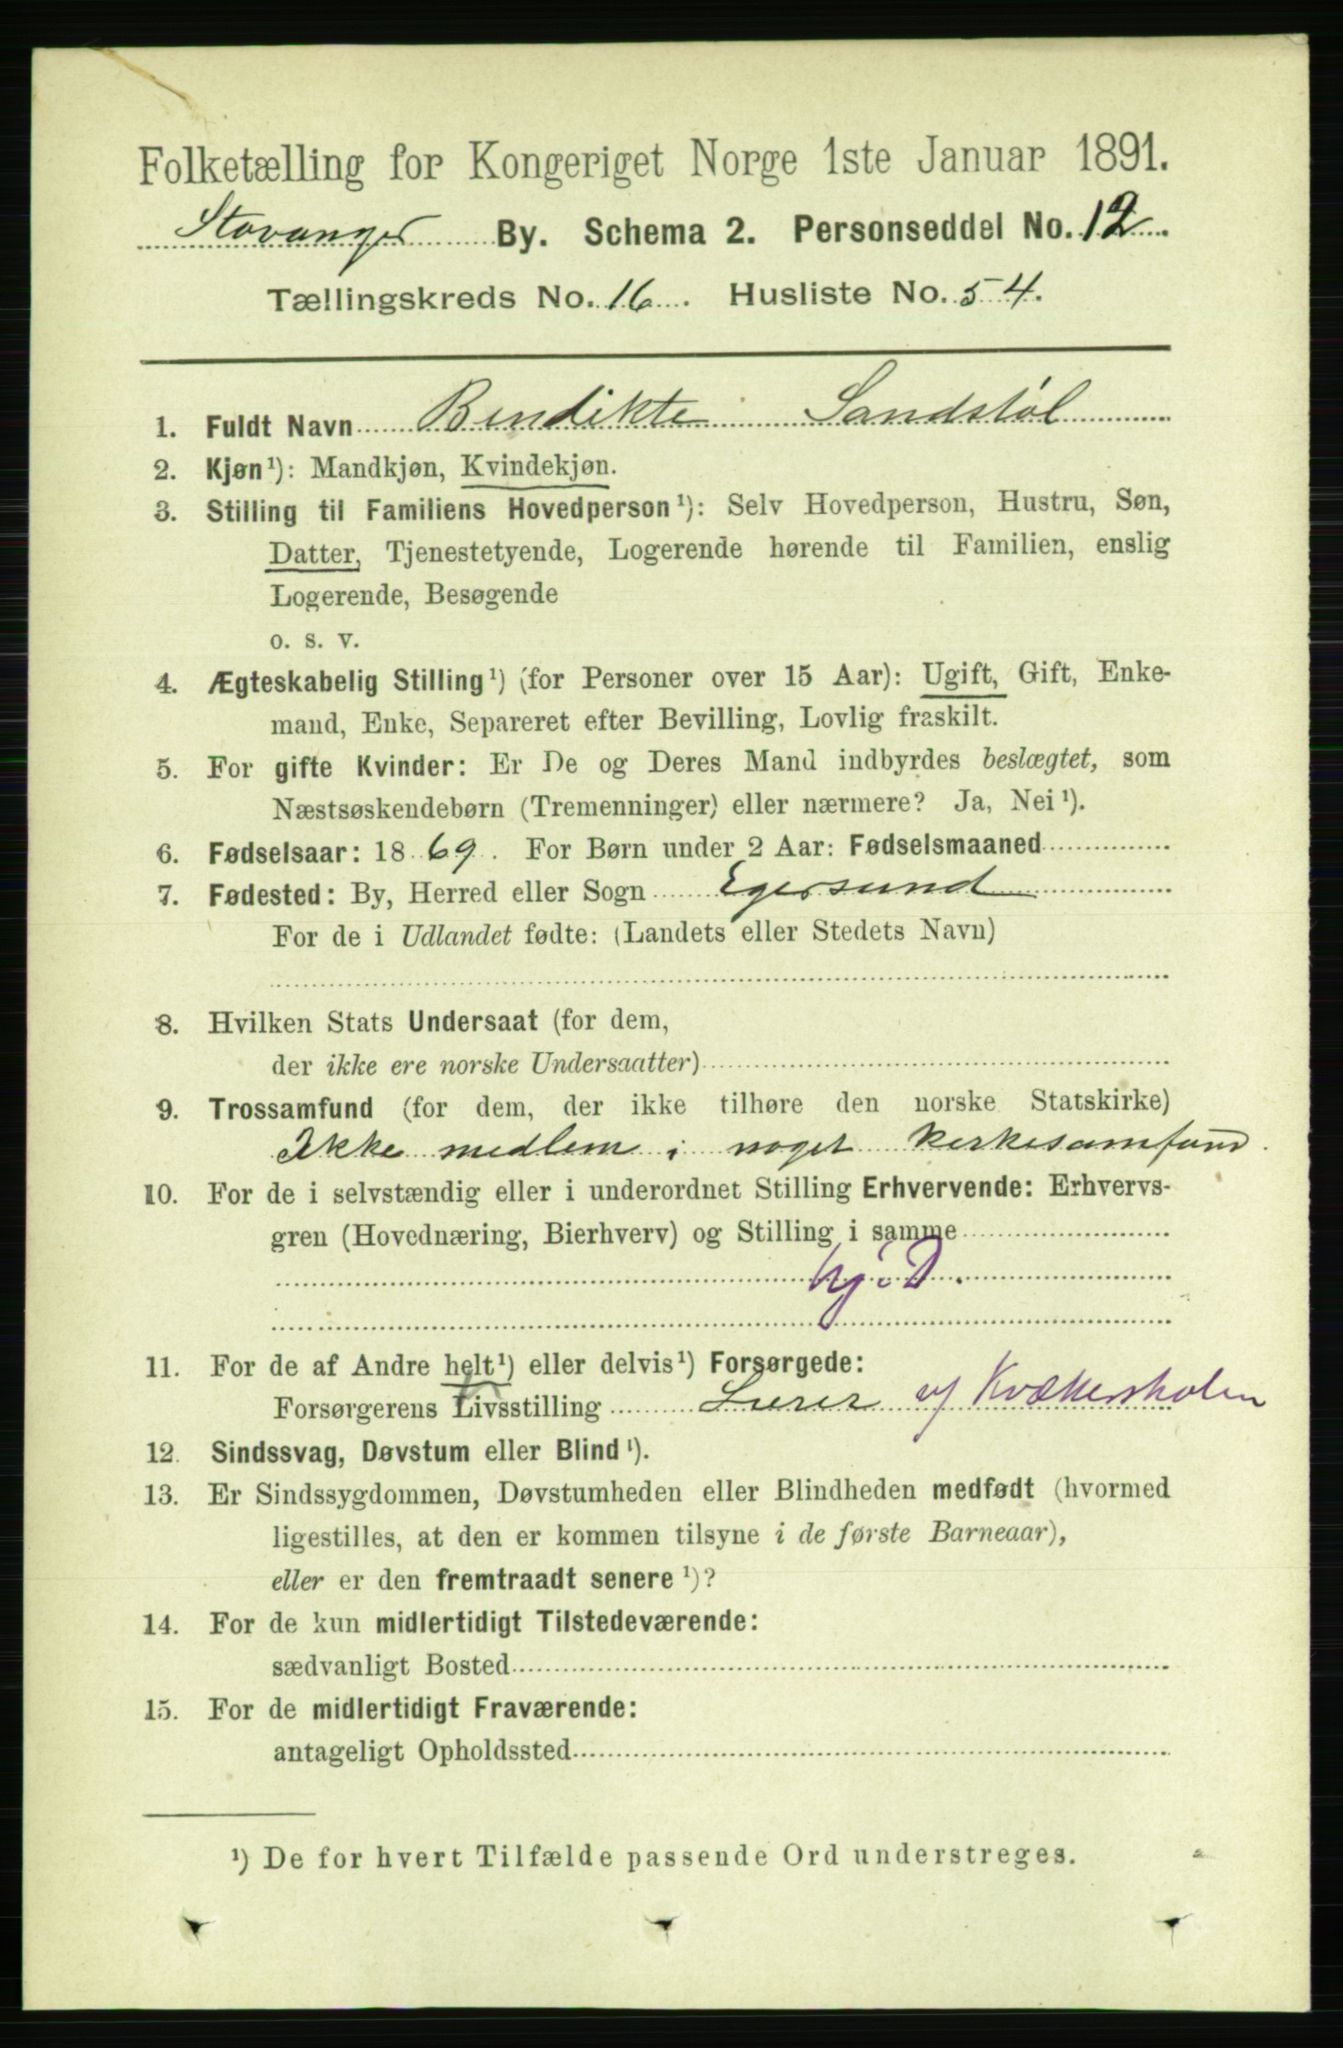 Folketælling for Kongeriget Norge 1ste Januar 1891.
Stavanger By. Schema 2. Personseddel No. 12.
Tællingskreds No. 16. Husliste No. 54.
1. Fuldt Navn Bendikte Sandstøl
2. Kjøn¹): Mandkjøn, Kvindekjøn.
3. Stilling til Familiens Hovedperson¹): Selv Hovedperson, Hustru, Søn,
Datter, Tjenestetyende, Logerende hørende til Familien, enslig
Logerende, Besøgende
o. s. v.
4. Ægteskabelig Stilling¹) (for Personer over 15 Aar): Ugift, Gift, Enke-
mand, Enke, Separeret efter Bevilling, Lovlig fraskilt.
5. For gifte Kvinder: Er De og Deres Mand indbyrdes beslægtet, som
Næstsøskendebørn (Tremenninger) eller nærmere? Ja, Nei¹).
6. Fødselsaar: 1869. For Børn under 2 Aar: Fødselsmaaned
7. Fødested: By, Herred eller Sogn Egersund
For de i Udlandet fødte: (Landets eller Stedets Navn)
8. Hvilken Stats Undersaat (for dem,
der ikke ere norske Undersaatter)
9. Trossamfund (for dem, der ikke tilhøre den norske Statskirke)
Ikke medlem i noget kirkesamfund.
10. For de i selvstændig eller i underordnet Stilling Erhvervende: Erhvervs-
gren (Hovednæring, Bierhverv) og Stilling i samme
hj. D.
11. For de af Andre helt¹) eller delvis¹) Forsørgede:
Forsørgerens Livsstilling Lærer v/ Kvækerskolen
12. Sindssvag, Døvstum eller Blind¹).
13. Er Sindssygdommen, Døvstumheden eller Blindheden medfødt (hvormed
ligestilles, at den er kommen tilsyne i de første Barneaar),
eller er den fremtraadt senere¹)?
14. For de kun midlertidigt Tilstedeværende:
sædvanligt Bosted
15. For de midlertidigt Fraværende:
antageligt Opholdssted
¹) De for hvert Tilfælde passende Ord understreges.